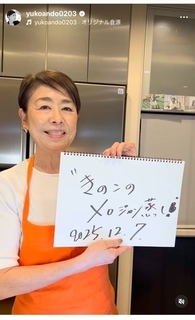 yukoando0203
オリジナル音源
"きのこの
メロジョン蒸し!
2025.12.7.